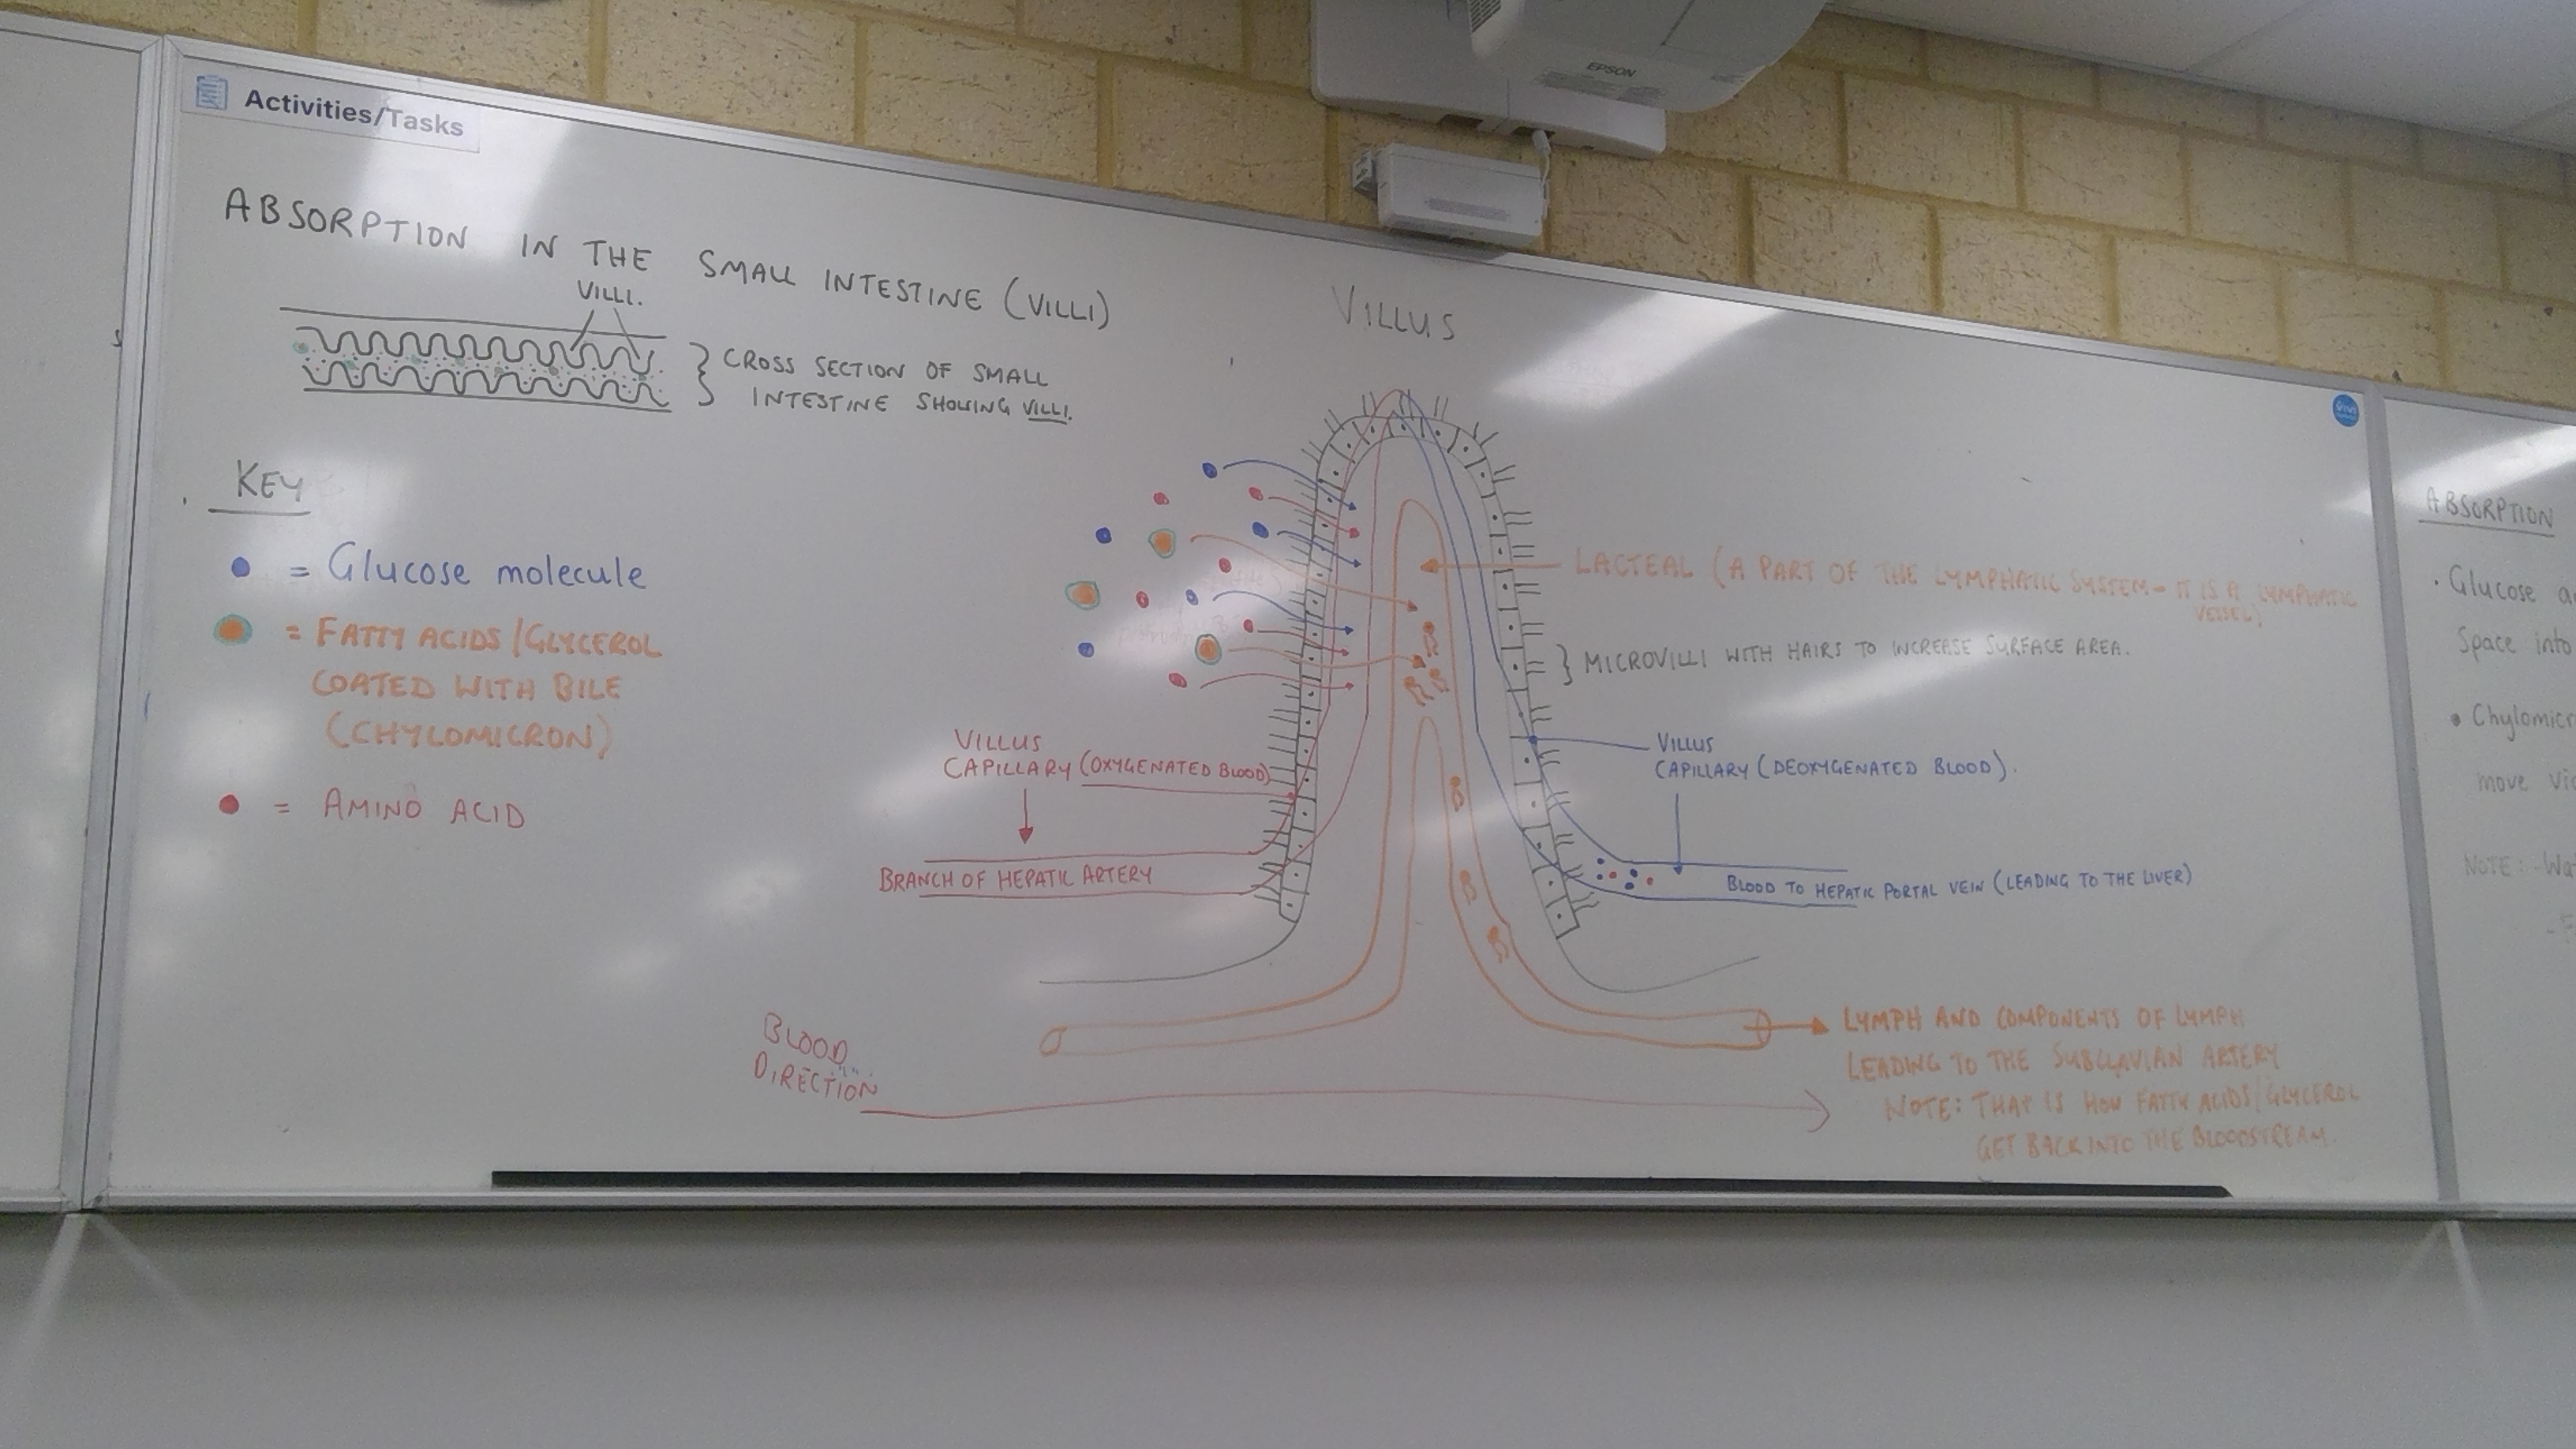 EPSON
Activities/Tasks
ABSORPTION IN THE SMALL INTESTINE (VILLI)
VILLI.
CROSS SECTION OF SMALL
INTESTINE SHOWING VILLI.
KEY
= Glucose molecule
= FATTY ACIDS/GLYCEROL
COATED WITH BILE
(CHYLOMICRON)
= AMINO ACID
VILLUS
LACTEAL (A PART OF THE LYMPHATIC SYSTEM - IT IS A LYMPHATIC
VESSEL)
MICROVILLI WITH HAIRS TO INCREASE SURFACE AREA.
VILLUS
CAPILLARY (OXYGENATED BLOOD)
BRANCH OF HEPATIC ARTERY
VILLUS
CAPILLARY (DEOXYGENATED BLOOD).
BLOOD TO HEPATIC PORTAL VEIN (LEADING TO THE LIVER)
BLOOD
DIRECTION
LYMPH AND COMPONENTS OF LYMPH
LEADING TO THE SUBCLAVIAN ARTERY
NOTE: THAT IS HOW FATTY ACIDS/GLYCEROL
GET BACK INTO THE BLOODSTREAM.
ABSORPTION
• Glucose
Space into
• Chylomicr
move
NOTE: